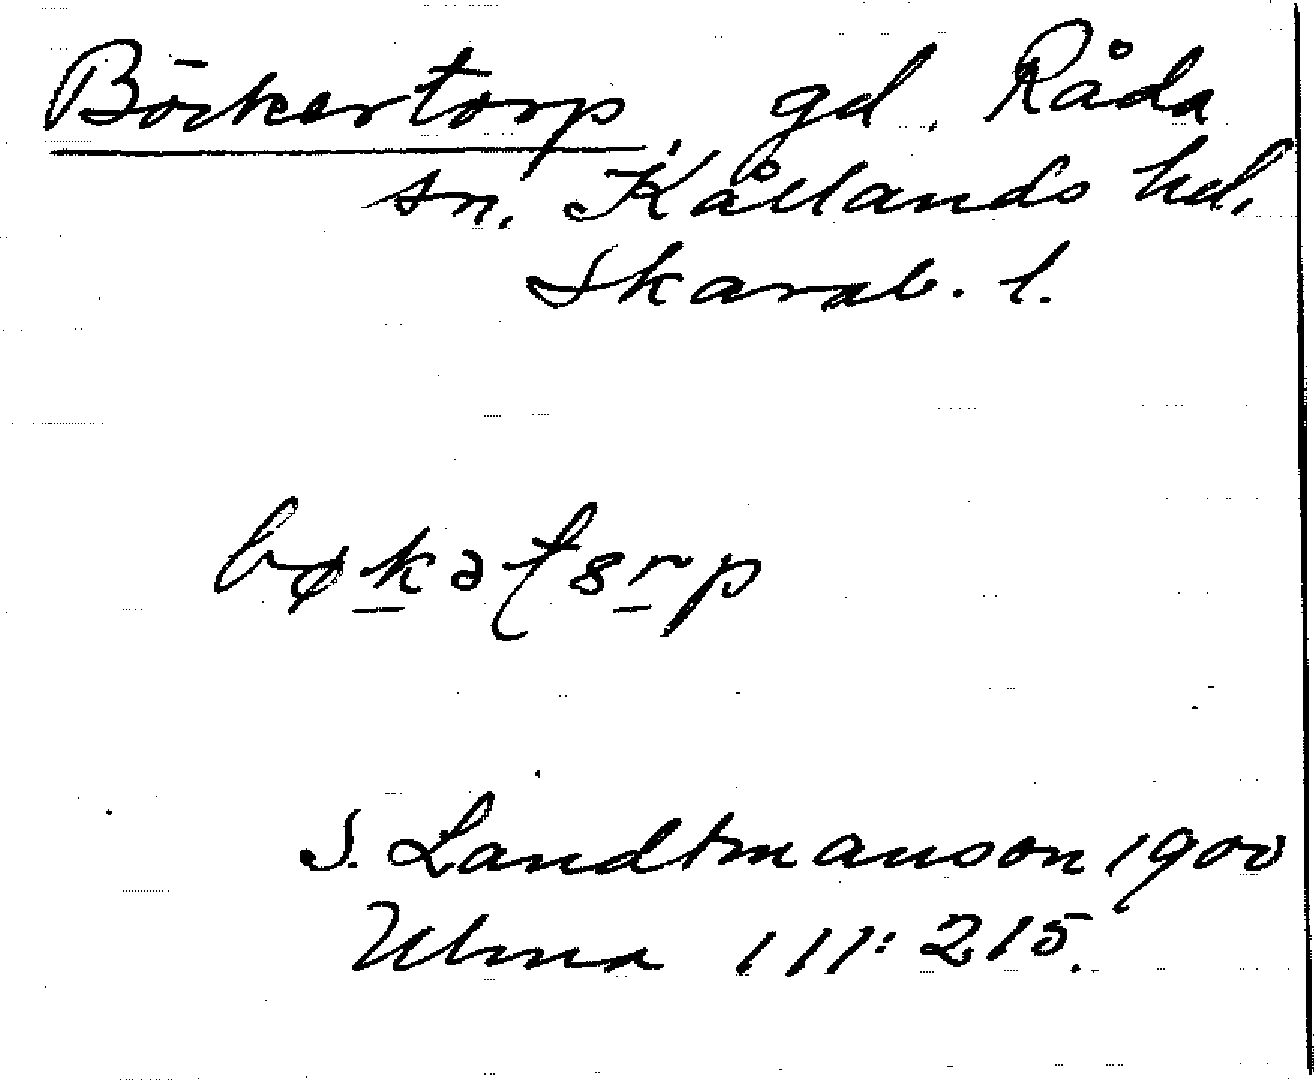 Böckertorp, gd, Råda
sn. Kållands hd,
Skarab. l.
S. Landtmanson 1900
Ulma 111:215.